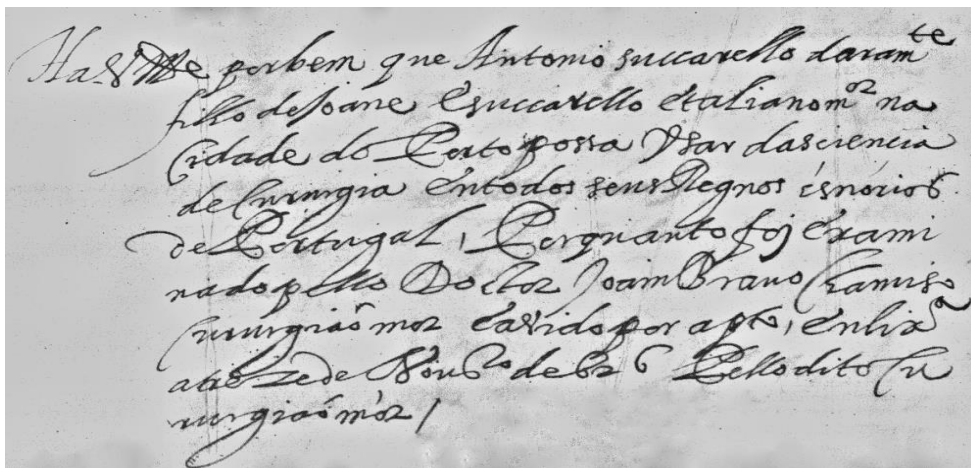 Ha S Mde por bem que Antonio succarello daramte
filho de Joane Esuccarello etaliano mor na
Cidade do Porto possa Vsar da sciencia
de Cirurgia entodos seus Regnos
de Portugal, Porquanto foj exami
nado pello Doctor Joam Bravo Chamiso
Cirurgiaõ mor e avido por apto, enlixa
a treze de Noubro de 626 Pello dito Cu
rurgiaõ mor /